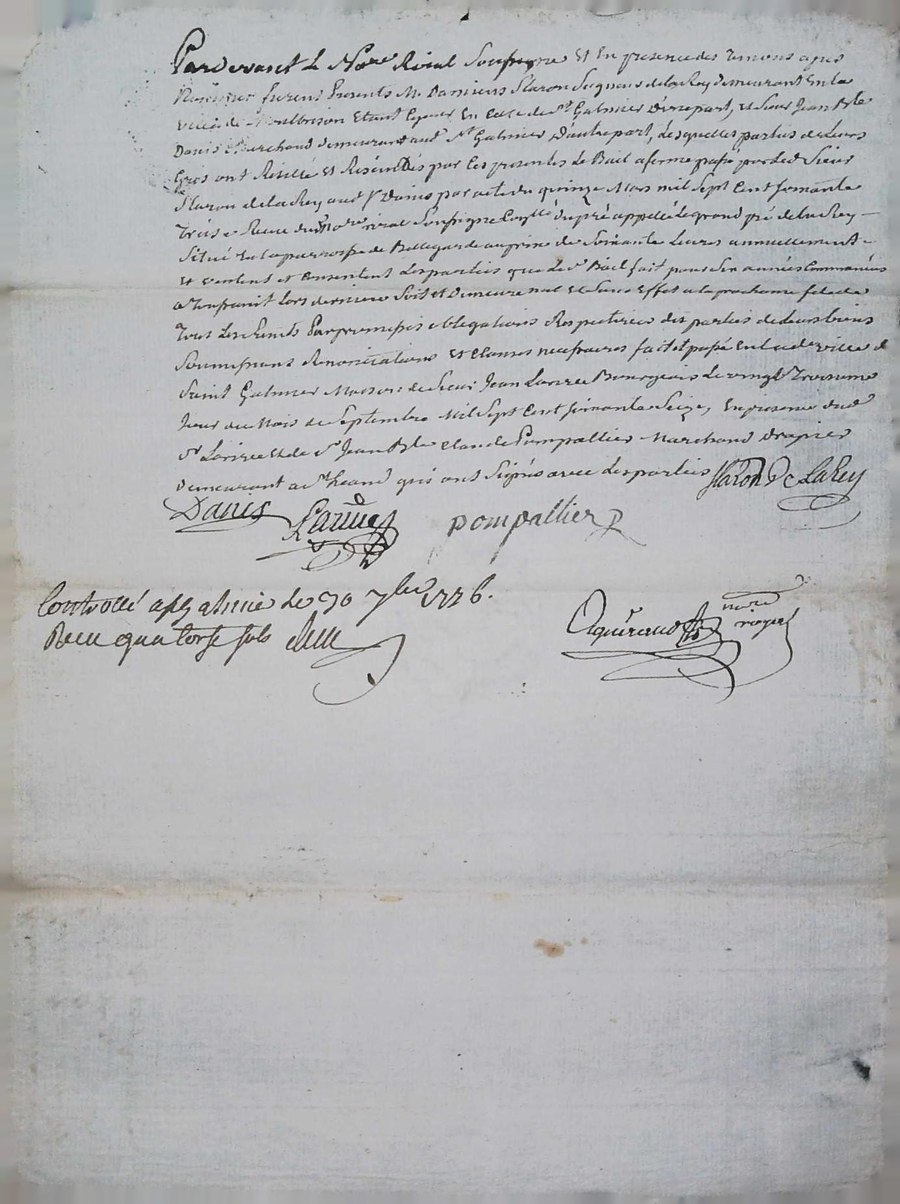 Pardevant Le No.re Roial Soussigne Et En presence des temoins apres
Nommes furent Presents M. Staron Seigneur de la Rey demeurant En la
ville de Montbrison Etant Ce jour En Celle de St. Galmier D'une part, et Sieur Jean Bte.
Danis Marchand demeurant aud. St. Galmier D'autre part, Lesquelles parties de Leurs
Gres ont Resillé et Resindés par Ces presentes Le Bail a ferme passé par led. Sieur
Staron de la Rey aud. Sr. Danis par acte du quinze Mars mil Sept Cent soixante
treze Receu du No.re roial Soussigne du pré appellé Le grand pré de la Rey
Situé en la parroisse de Bellegarde au prix de Soixante Livres annuellement
Et veulent et Consentent Les parties que Led. Bail fait pour Six années Commancées
a la Toussaint Lors derniere Soit et Demeure nul et Sans Effet a la prochaine fete de
Tous Les Saints Par promesses obligations Respectives des parties de Leurs biens
Soumissions Renonciations Et Clauses necessaires fait et passé En lad. ville de
Saint Galmier Maison de Sieur Jean Bourgeois Le vingt Troisieme
Jour du Mois de Septembre Mil Sept Cent soixante Seize, En presence dud.
Sr. et de Sr. Jean Bte. Claude Pompallier Marchand drapier
demeurant a qui ont Signés avec Les parties Staron De LaRey
Danis pompallier
Controllé a St galmier le 30 7bre 1776.
Recu quatorse sols
notre
royal